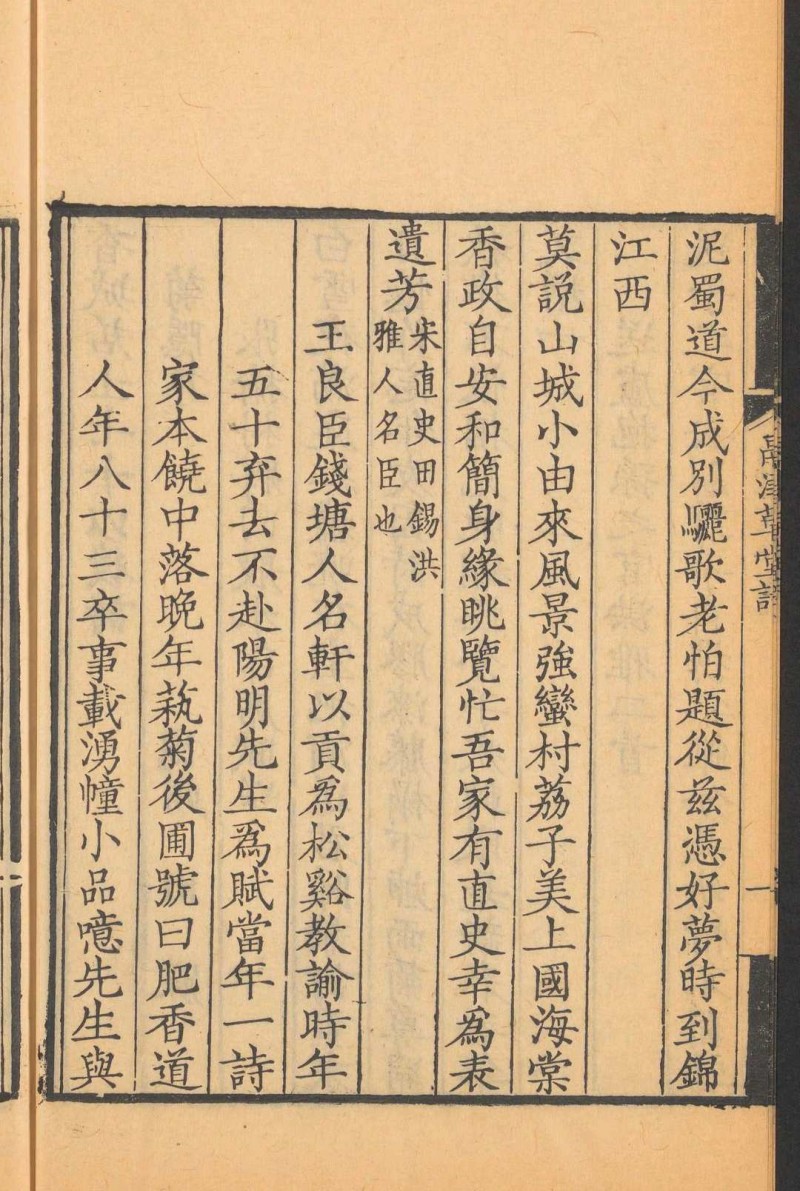 泥蜀道今成別驪歌老怕題從茲憑好夢時到錦
江西
莫説山城小由來風景強蠻村荔子美上國海棠
香政自安和簡身緣眺覽忙吾家有直史幸爲表
遺芳宋直史田錫洪
雅人名臣也
王良臣錢塘人名軒以貢爲松谿教諭時年
五十弃去不赴陽明先生爲賦當年一詩
家本饒中落晚年蓺菊後圃號曰肥香道
人年八十三卒事載湧幢小品噫先生與
草堂
一